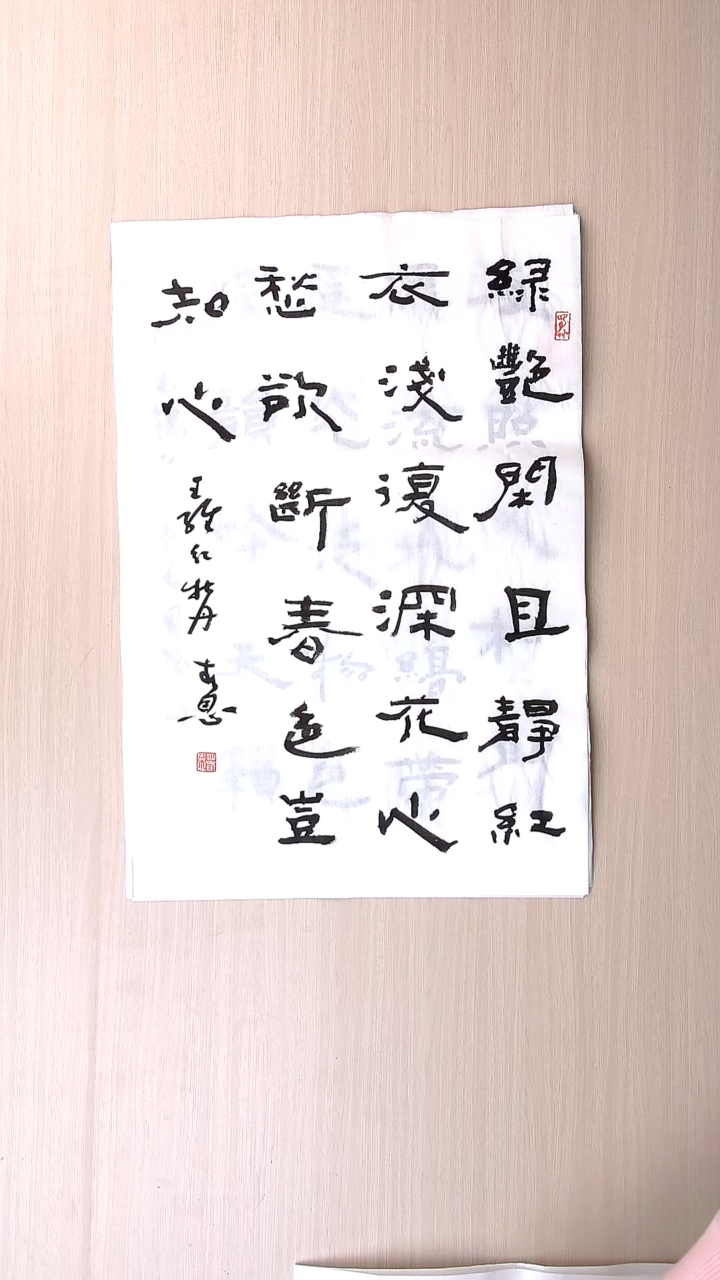 緑艷閑且靜紅
衣淺復深花心
愁欲斷春色豈
知心
王維紅牡丹 春恩